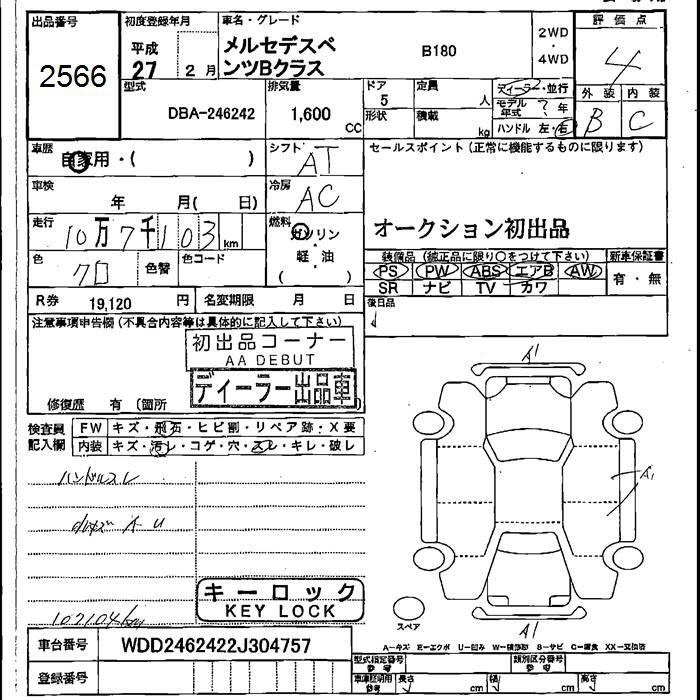 出品番号
2566
初度登録年月
平成
27 2月
車名・グレード
メルセデスベ
ンツBクラス
B180
2WD
・
4WD
評価点
4
外装 内装
B C
型式
DBA-246242
排気量
1,600
CC
ドア
5
形状
定員
人
積載
kg
ディーラー・並行
モデル
年式 ? 年
ハンドル 左・右
車歴
自家用・( )
シフト
AT
セールスポイント(正常に機能するものに限ります)
オークション初出品
車検
年 月( 日)
冷房
AC
走行
10万7千103km
燃料
ガソリン
・
軽油
色
クロ
色替
色コード
装備品(純正品に限り○をつけて下さい)
PS PW ABS エアB AW
SR ナビ TV カワ
新車保証書
有・無
R券 19,120 円
名変期限 月 日
後日品
注意事項申告欄(不具合内容等は具体的に記入して下さい)
初出品コーナー
AA DEBUT
ディーラー出品車
修復歴 有(箇所
検査員
記入欄
FW キズ・飛石・ヒビ割・リペア跡・X要
内装 キズ・汚レ・コゲ・穴・スレ・キレ・破レ
ハンドルスレ
107104km
キーロック
KEY LOCK
A1
A1
A1
スペア
車台番号 WDD2462422J304757
登録番号
A-キズ E-エクボ U-凹み
型式指定番号
参考
類別区分番号
参考
車庫証明用
参考
長さ cm 幅 cm 高さ cm